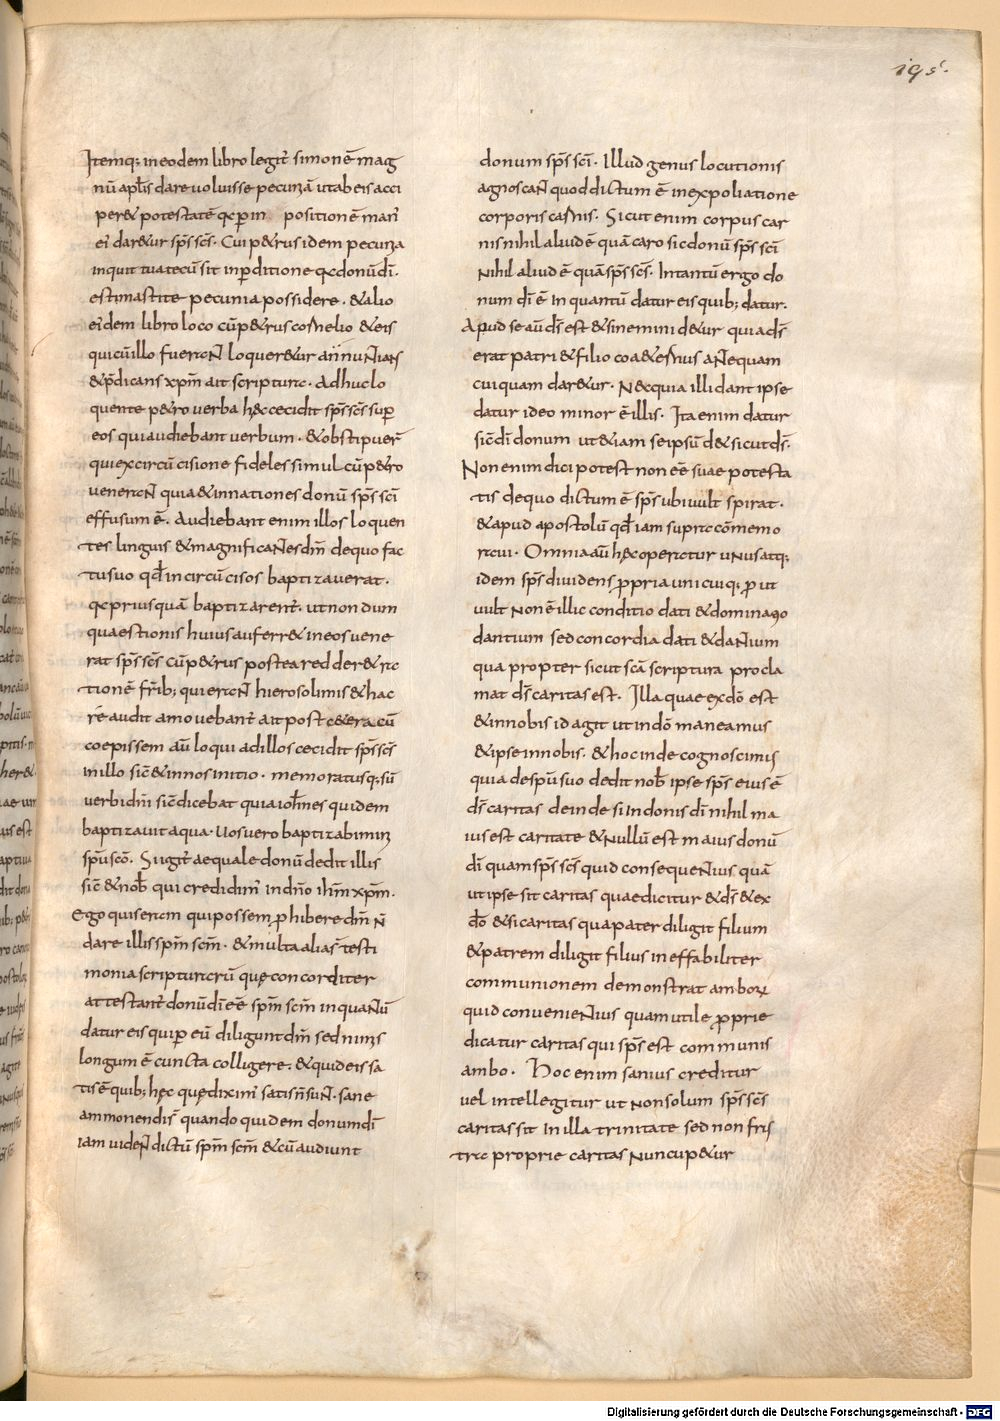 195.
Itemq; ineodem libro legit̄ simonē mag
nū apl̄is dare uoluisse pecuniā utabeis acci
per& potestatē qc̣ p in positionē man̄
ei dar&ur sp̄s sc̄s. Cui p&rus idem pecunia
inquit tuatecū sit inp̄ditione qc̣donūdī.
estimastite pecunia possidere. &alio
eidem libro loco cū p&rus cornelio &eis
quicūillo fuerant loquer&ur annuntians
&p̄dicans xp̄m ait scriptura. Adhuc lo
quente p&ro uerba hęc cecidit sp̄s sc̄s sup̄
eos quiaudiebant uerbum. &obstipuer̄
quiexcircū cisione fideles simul cū p&ro
uenerant quia &innationes donū sp̄s sc̄i
effusum ē. Audiebant enim illos loquen
tes linguis &magnificantes dm̄ dequo fac
tusuo qđ incircūcisos baptizauerat.
qc̣priusquā baptizarent̄. utnon dum
quaestionis huius auferr& ineos uene
rat sp̄s sc̄s cū p&rus postea red der& ra
tionē fr̄ib; quierant hierosolimis &hac
rē audit amouebant̄ ait post c&era cū
coepissem aū loqui adillos cecidit sp̄s sc̄s
inillo sic̄ &innos initio. memoratusq; sū
uerbi dn̄i sic̄ dicebat quia ioh̄nes quidem
baptizauit aqua. Uos uero baptizabimini
sp̄u sc̄o. Si igit̄ aequale donū dedit illis
sic̄ &nob̄ qui credidim̄ indn̄o ih̄m xp̄m.
Ego quis eram qui possem p̄hibere dm̄ n̄
dare illis sp̄m sc̄m. &multa alia s̄ testi
monia scripturarū quę concorditer
attestant̄ donū dī eē sp̄m sc̄m inquantū
datur eis qui p eū diligunt dm̄ sed nimis
longum ē cuncta colligere. &quid eis sa
tis ē quib; hęc quę dixim̄ satis n̄ sunt. sane
ammonendi s̄ quando quidem donum dī
iam uident dictū sp̄m sc̄m &cū audiunt
donum sp̄s sc̄i. Illud genus locutionis
agnoscant quod dictum ē inexpoliatione
corporis carnis. Sicut enim corpus car
nis nihil aliud ē quā caro sic donū sp̄s sc̄i
nihil aliud ē quā sp̄s sc̄s. Intantū ergo do
num dī ē inquantū datur eis quib; datur.
Apud se aū ds̄ est &sinemini d&ur quia ds̄
erat patri &filio coa&ernus antequam
cuiquam dar&ur. Nec quia illi dant ipse
datur ideo minor ē illis. Ita enim datur
sic̄ dī donum ut &iam seipsū d& sicut ds̄.
Non enim dici potest non eē suae potesta
tis dequo dictum ē sp̄s ubi uult spirat.
&apud apostolū qđ iam supra cōmemo
raui. Omnia aū hęc operatur unus atq;
idem sp̄s diuidens p̄pria unicuiq; p ut
uult non ē illic conditio dati &dominatio
dantium sed concordia dati &dantium
qua propter sicut sc̄a scriptura procla
mat ds̄ caritas est. Illa quae exdō est
&innobis id agit ut indō maneamus
&ipse innobis. &hoc inde cognoscimus
quia desp̄u suo dedit nob̄ ipse sp̄s eius ē
ds̄ caritas deinde si indonis dī nihil ma
ius est caritate &nullū est maius donū
dī quam sp̄s sc̄s quid consequentius quā
ut ipse sit caritas quae dicitur &ds̄ &ex
dō &si caritas qua pater diligit filium
&patrem diligit filius ineffabiliter
communionem demonstrat amborum
quid conuenientius quam ut ille p̄prie
dicatur caritas qui sp̄s est communis
ambo. Hoc enim sanius creditur
uel intellegitur ut non solum sp̄s sc̄s
caritas sit in illa trinitate sed non frus
tra proprie caritas nuncup&ur
Digitalisierung gefördert durch die Deutsche Forschungsgemeinschaft - DFG